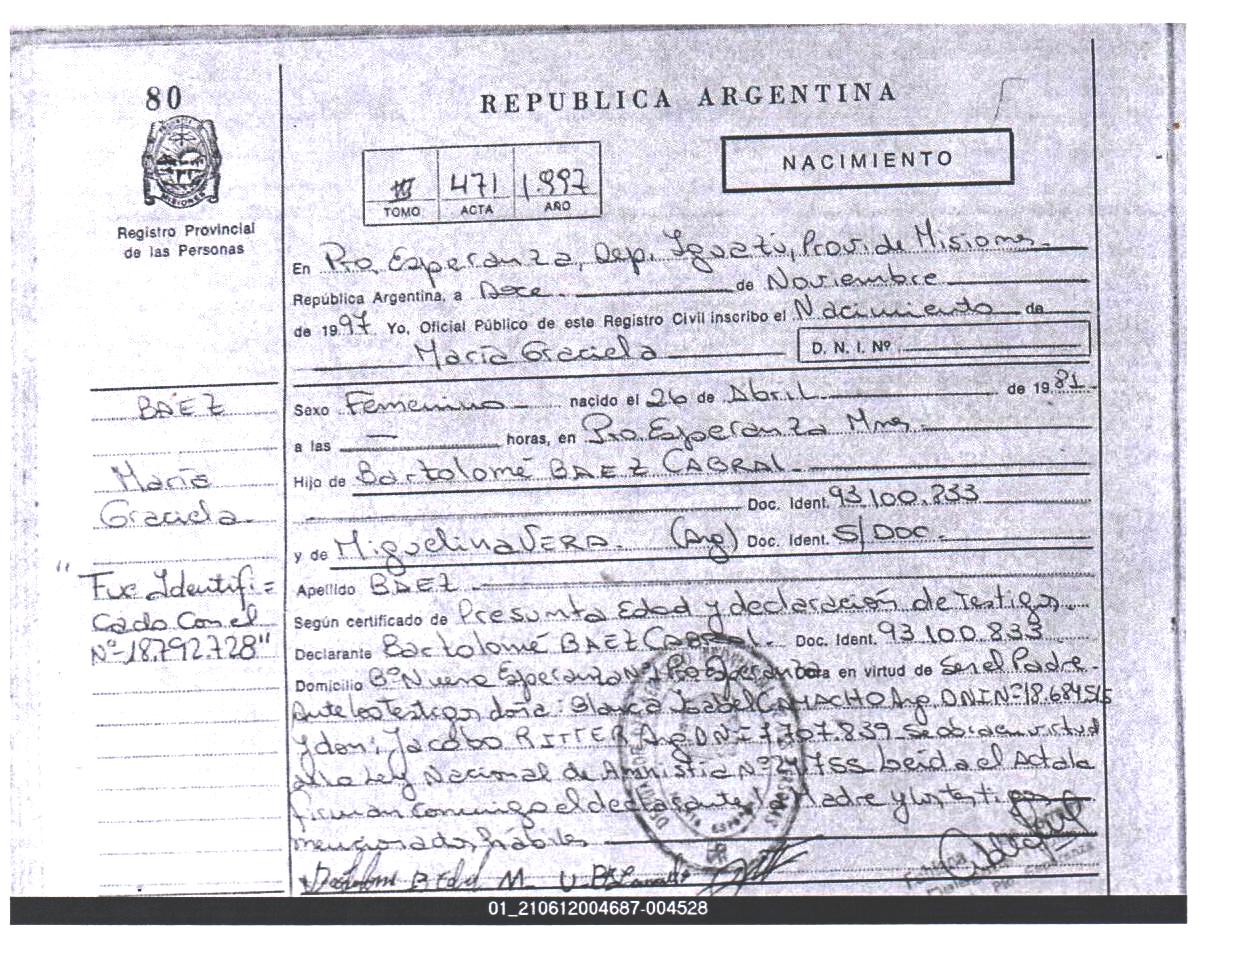 80
REPUBLICA ARGENTINA
NACIMIENTO
III 471 1.997
TOMO ACTA AÑO
MISIONES
Registro Provincial
de las Personas
En Pto. Esperanza, Dep. Iguazú, Prov. de Misiones
República Argentina, a Doce de Noviembre
de 1997 Yo, Oficial Público de este Registro Civil inscribo el Nacimiento de
María Graciela
D. N. I. Nº
BAEZ
María
Graciela
"Fue Identifi=
cado Con el
Nº 18.792.728"
Sexo Femenino nacido el 26 de Abril de 1981
a las — horas, en Pto. Esperanza Mnes.
Hijo de Bartolomé BAEZ CABRAL
Doc. Ident. 93.100.833
y de Miguelina VERA. (Arg) Doc. Ident. S/DOC.
Apellido BAEZ
Según certificado de Presunta Edad y declaración de Testigos
Declarante Bartolomé BAEZ CABRAL. Doc. Ident. 93.100.833
Domicilio Bº Nueva Esperanza Nº Pto Esperanza Obra en virtud de Ser el Padre
Ante los testigos doña: Blanca Isabel CAMACHO Arg. DNI Nº 18.684.515
y don: Jacobo RITTER Arg. DNI 7.707.839 Se obra en virtud
a la Ley Nacional de Amnistia Nº 24.755 Leida el Acta la
firman conmigo el declarante, Madre y los testigos
mencionados, hábiles
01_210612004687-004528